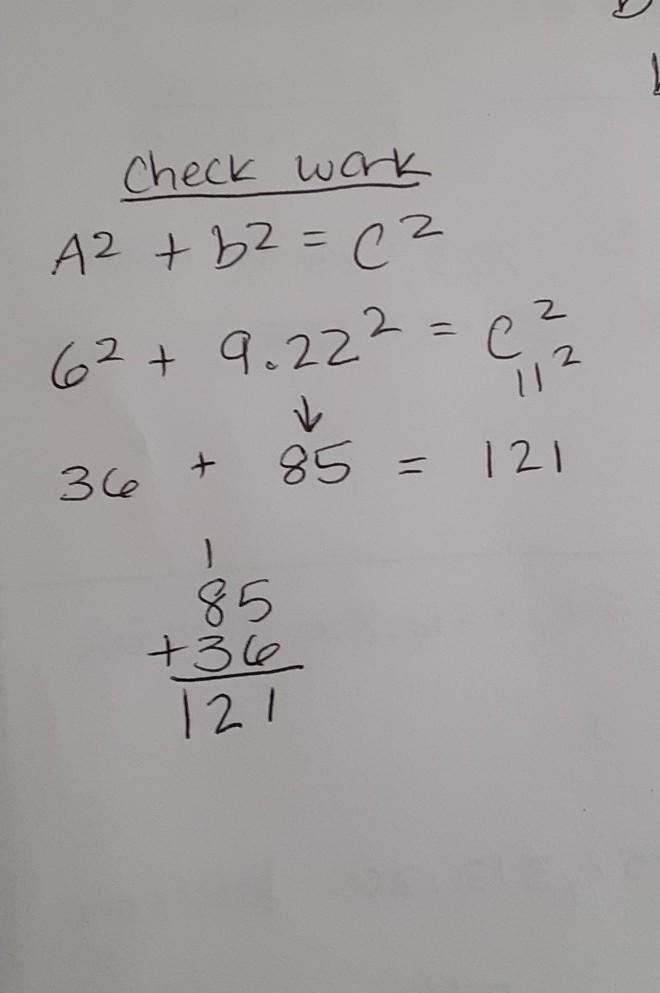 Check work
A² + b² = C²
6² + 9.22² = C²
11²
↓
36 + 85 = 121
1
85
+36
121